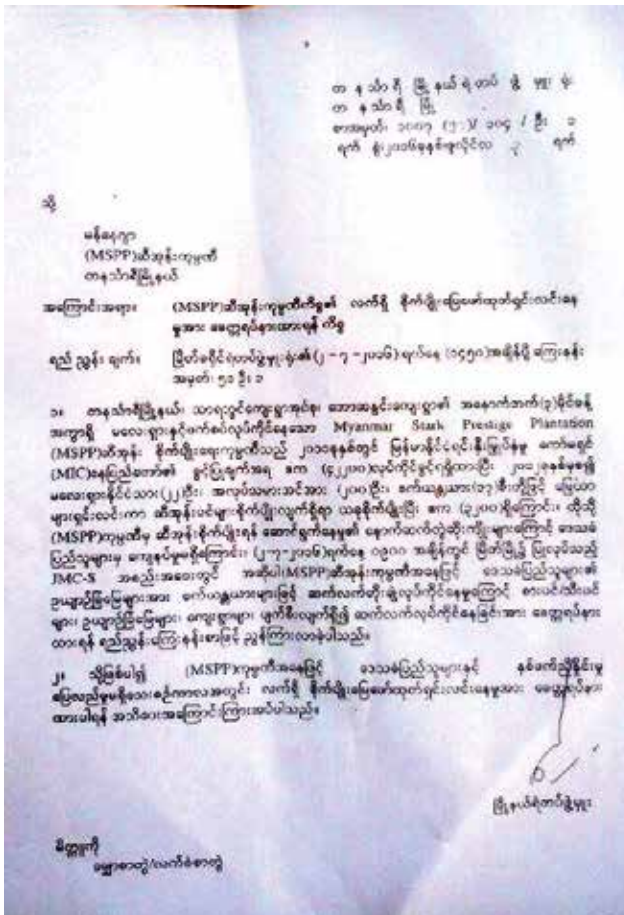 တ န င်္သာ ရီ မြို့ နယ် ရဲ တပ် ဖွဲ့ မှူး ရုံး
တ န င်္သာ ရီ မြို့
ရက် စွဲ၊၂၀၁၆ခုနှစ်ဇူလိုင်လ ရက်
သို့
မန်နေဂျာ
(MSPP)ဆီအုန်းကုမ္ပဏီ
တနင်္သာရီမြို့နယ်
အကြောင်းအရာ။ (MSPP)ဆီအုန်းကုမ္ပဏီကိစ္စ၏ လက်ရှိ စိုက်ပျိုးမြေဖော်ထုတ်ရှင်းလင်းနေ
မှုအား ခေတ္တရပ်နားထားရန် ကိစ္စ
ရည် ညွှန်း ချက်။ မြိတ်ခရိုင်ရဲတပ်ဖွဲ့မှူးရုံး၏ (၂-၇-၂၀၁၆) ရက်နေ့ (၁၄၅၀)အချိန်ပို့ ကြေးနန်း
အမှတ်၊ ၅၁ ဦး ၁
၁။ တနင်္သာရီမြို့နယ်၊ သာရဘွင်ကျေးရွာအုပ်စု၊ ကျေးရွာ၏ အနောက်ဘက်(၃)မိုင်ခန့်
အကွာရှိ မလေးရှားနှင့်ဖက်စပ်လုပ်ကိုင်နေသော Myanmar Stark Prestige Plantation
(MSPP)ဆီအုန်း စိုက်ပျိုးရေးကုမ္ပဏီသည် ၂၀၁၁ခုနှစ်တွင် မြန်မာနိုင်ငံရင်းနှီးမြှုပ်နှံမှု ကော်မရှင်
(MIC)နေပြည်တော်၏ ခွင့်ပြုချက်အရ ဧက လုပ်ကိုင်ခွင့်ရရှိထားပြီး ၂၀၁၂ခုနှစ်မှစ၍
မလေးရှားနိုင်ငံသား(၂၂)ဦး၊ အလုပ်သမားအင်အား (၂၀၀)ဦး၊ စက်ယန္တယား(၁၇)စီးတို့ဖြင့် မြေယာ
များရှင်းလင်းကာ ဆီအုန်းပင်များစိုက်ပျိုးလျက်ရှိရာ ယခုစိုက်ပျိုးပြီး ဧက ရှိကြောင်း၊ ထိုသို့
(MSPP)ကုမ္ပဏီမှ ဆီအုန်းစိုက်ပျိုးရန် ဆောင်ရွက်နေမှု၏ နောက်ဆက်တွဲဆိုးကျိုးများကြောင့် ဒေသခံ
ပြည်သူများမှ ကျေနပ်မှုမရှိကြောင်း၊ (၂-၇-၂၀၁၆)ရက်နေ့ ၀၉၀၀ အချိန်တွင် မြိတ်မြို့၌ ပြုလုပ်သည့်
JMC-S အစည်းအဝေးတွင် အဆိုပါ(MSPP)ဆီအုန်းကုမ္ပဏီအနေဖြင့် ဒေသခံပြည်သူများ၏
ဥယျာဉ်ခြံမြေများအား စက်ယန္တယားများဖြင့် ဆက်လက်တိုးချဲ့လုပ်ကိုင်နေမှုကြောင့် စားပင်/သီးပင်
များ၊ ဥယျာဉ်ခြံမြေများ၊ ကျေးရွာများ ပျက်စီးလျက်ရှိ၍ ဆက်လက်လုပ်ကိုင်နေခြင်းအား ခေတ္တရပ်နား
ထားရန် ရည်ညွှန်းကြေးနန်းစာဖြင့် ညွှန်ကြားလာခဲ့ပါသည်။
၂။ သို့ဖြစ်ပါ၍ (MSPP)ကုမ္ပဏီအနေဖြင့် ဒေသခံပြည်သူများနှင့် နှစ်ဖက်ညှိနှိုင်းမှု
ပြေလည်မှုမရှိသေးစဉ်ကာလအတွင်း လက်ရှိ စိုက်ပျိုးမြေဖော်ထုတ်ရှင်းလင်းနေမှုအား ခေတ္တရပ်နား
ထားပါရန် အသိပေးအကြောင်းကြားအပ်ပါသည်။
မြို့နယ်ရဲတပ်ဖွဲ့မှူး
မိတ္တူကို
မျှောစာတွဲ/လက်ခံစာတွဲ